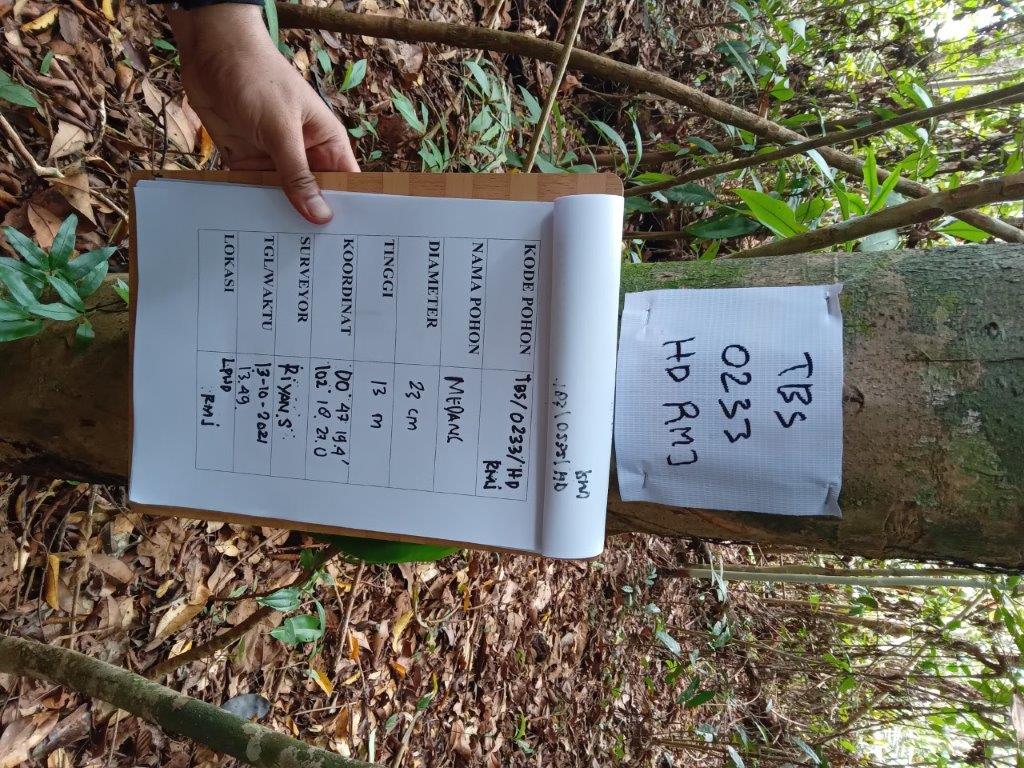 TBS
0233
HD RMJ
KODE POHON TBS/0233/HD
RMJ
NAMA POHON MEDANG
DIAMETER 23 cm
TINGGI 13 m
KOORDINAT 00° 47' 19.4"
102° 18' 21.0
SURVEYOR RIYAN.S
TGL/WAKTU 13-10-2021
13.49
LOKASI LPHD
RMJ